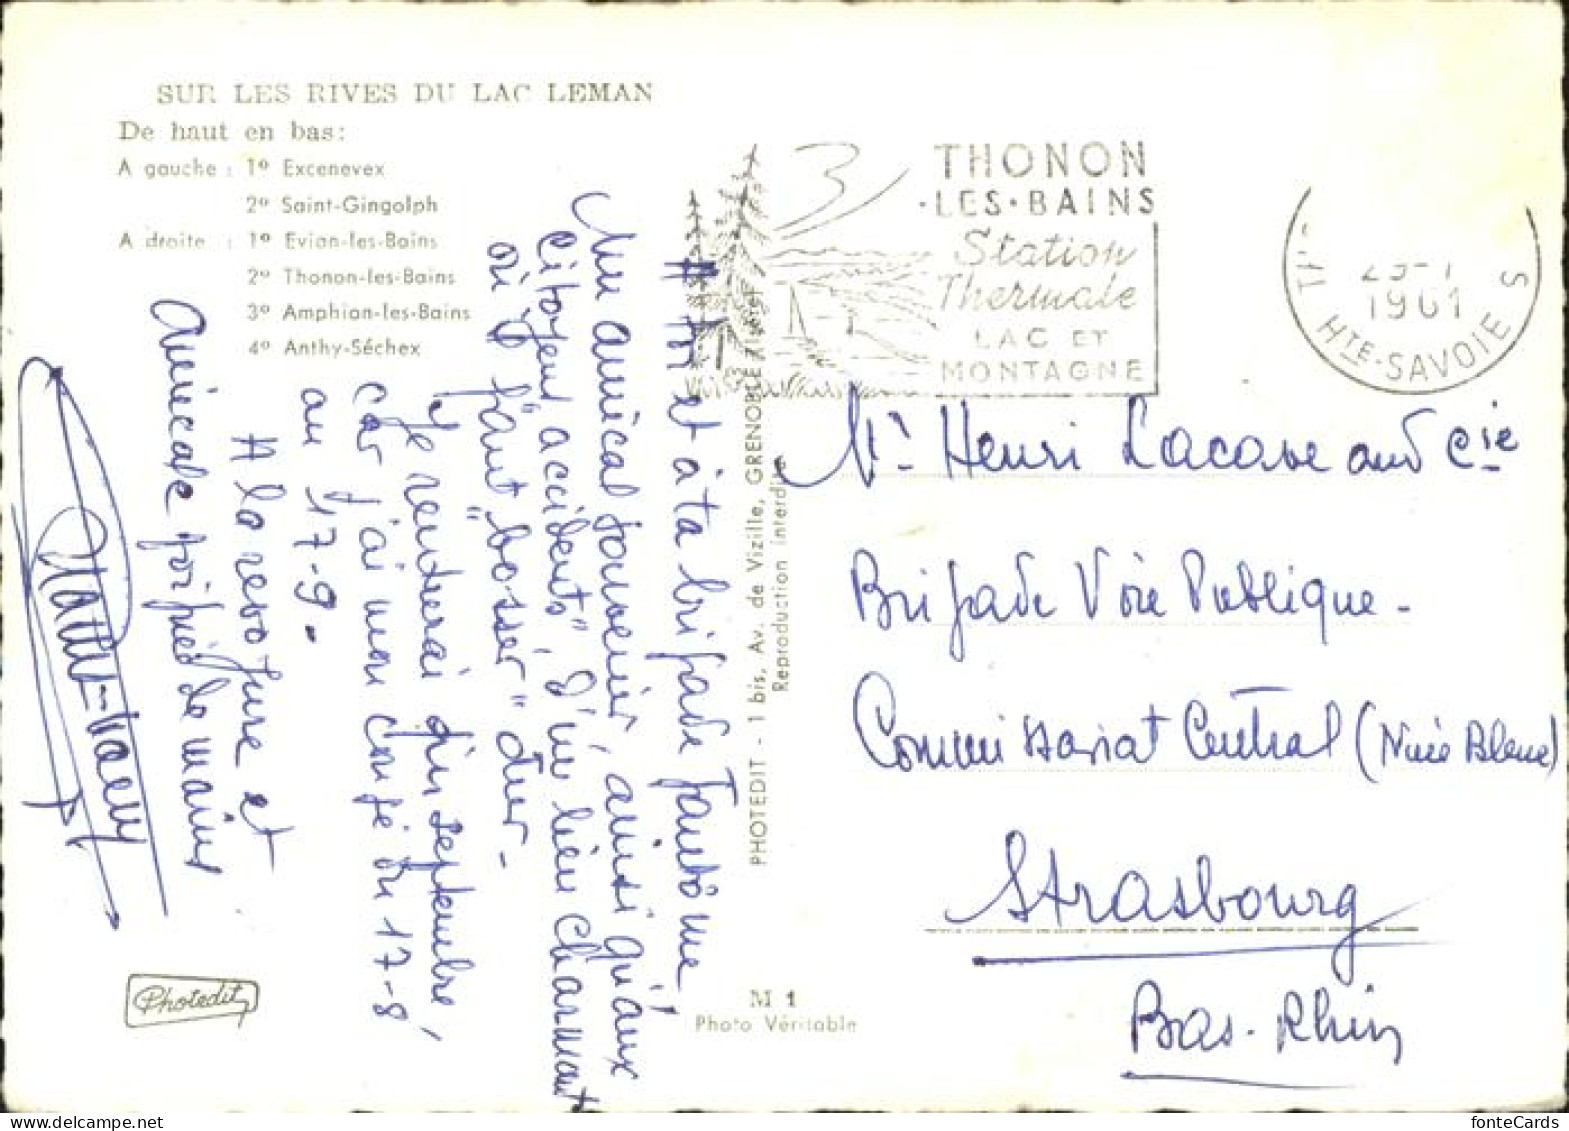 SUR LES RIVES DU LAC LEMAN
De haut en bas:
A gauche : 1º Excenevex
2º Saint-Gingolph
A droite : 1º Evian-les-Bains
2º Thonon-les-Bains
3º Amphion-les-Bains
4º Anthy-Séchex
THONON
·LES·BAINS
Station
Thermale
LAC ET
MONTAGNE
1961
HTE-SAVOIE
et à ta brigade Fantôme
Un amical souvenir, ainsi qu'aux
Citoyens "accidents", d'un lieu charmant
où il faut "bosser" dur-
Je rentrerai qu'en septembre,
car j'ai mon congé du 17-8
au 17-9-
A la revoyure et
Amicale poignée de mains
PHOTEDIT - 1 bis, Av. de Vizille, GRENOBLE
Reproduction interdite
Photedit
M 1
Photo Véritable
Mr Henri Lacave and Cie
Brigade Voie Publique-
Commissariat Central (Nuée Bleue)
Strasbourg
Bas-Rhin
delcampe.net
fonteCards